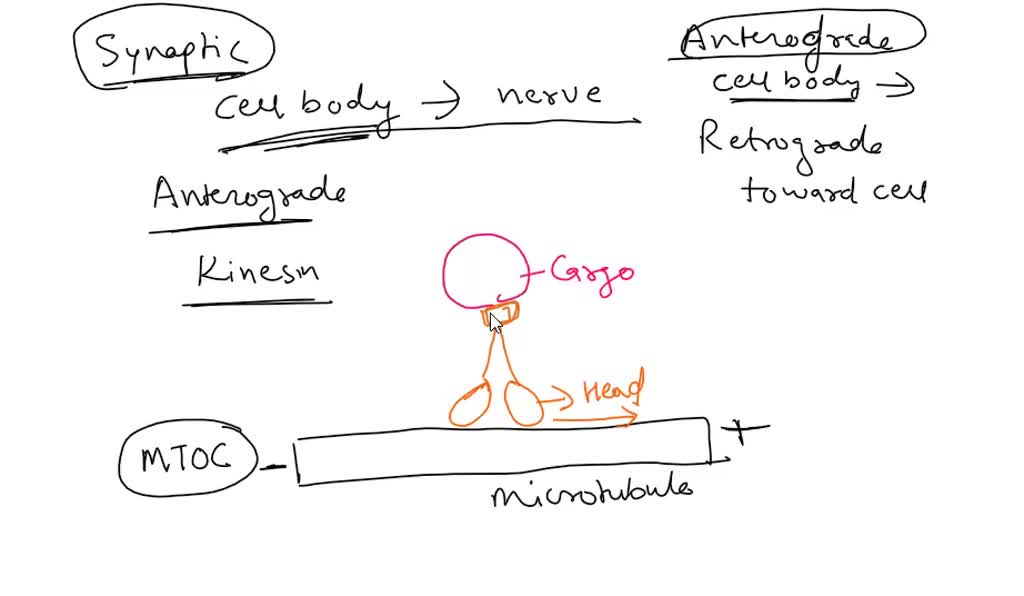 Synaptic
cell body → nerve
Anterograde
Kinesin
Anterograde
cell body →
Retrograde
toward cell
Cargo
→ Head
MTOC
- +
microtubule